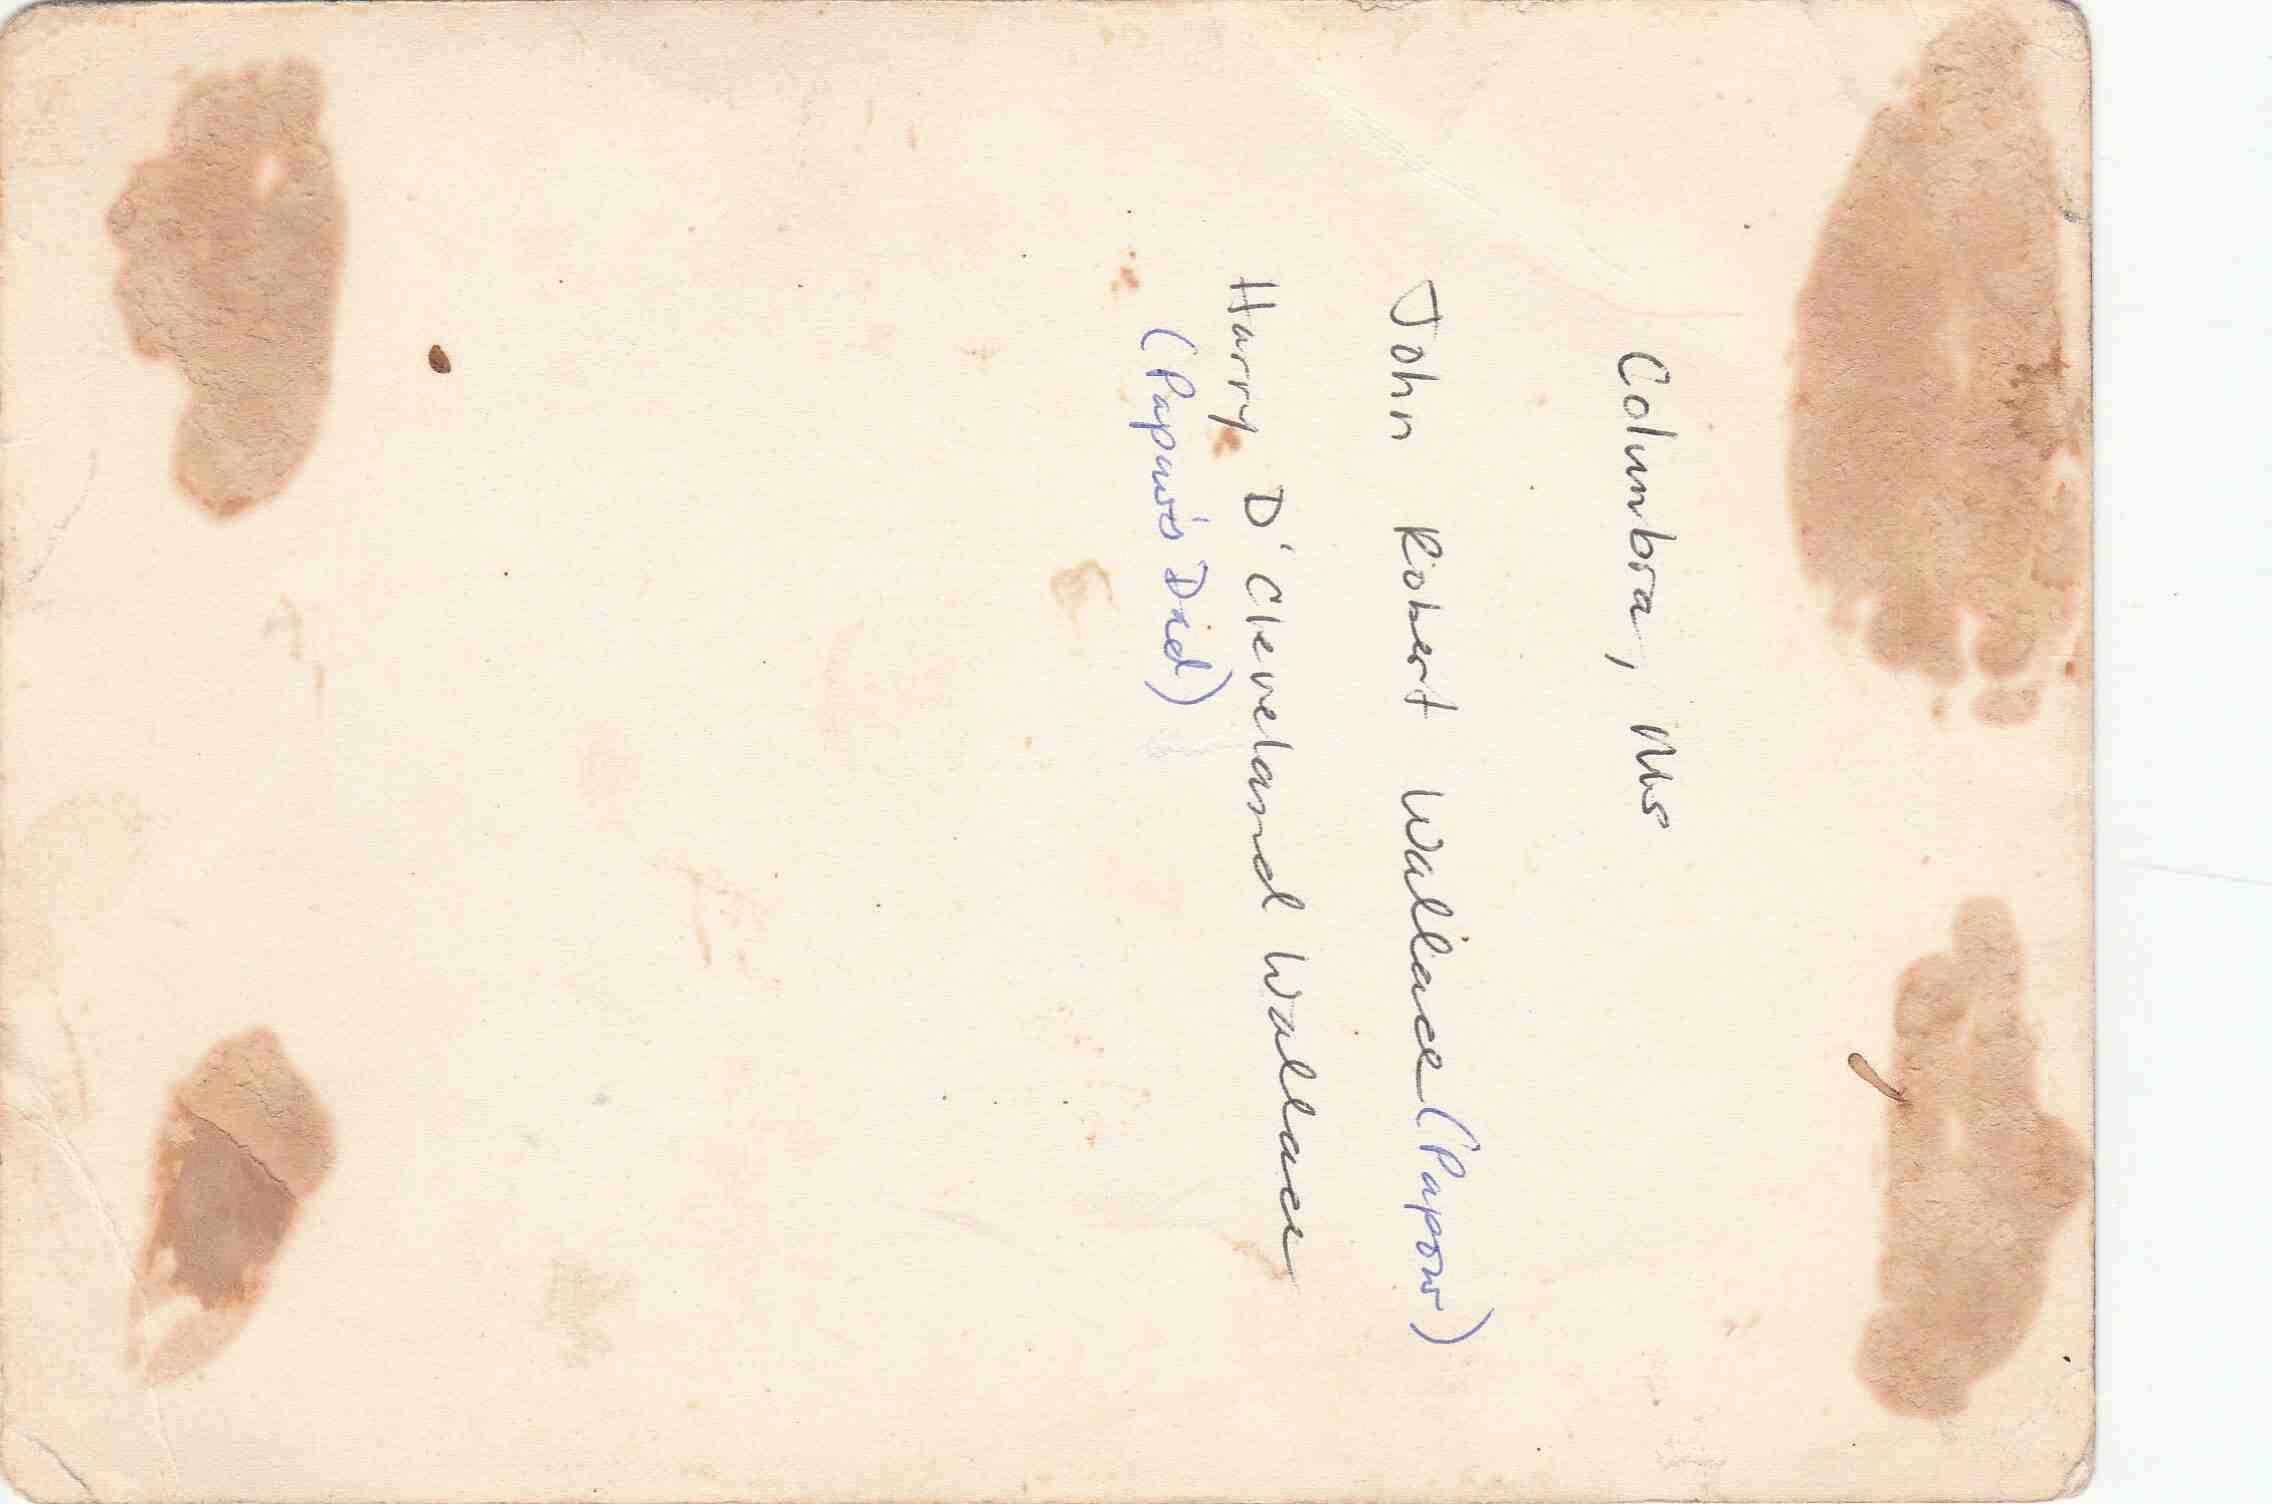 Columbia, Ms
John Robert Wallace (Papaw)
Harry D'Cleveland Wallace
(Papaw's Dad)